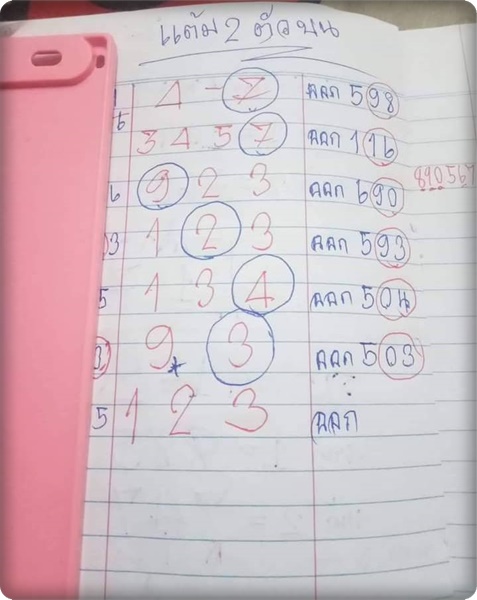 แต้ม 2 ตัวบน
4 - 7 ออก 598
3 4 5 7 ออก 116
6 9 2 3 ออก 690 890567
03 1 2 3 ออก 593
5 1 3 4 ออก 504
9 3 ออก 503
5 1 2 3 ออก